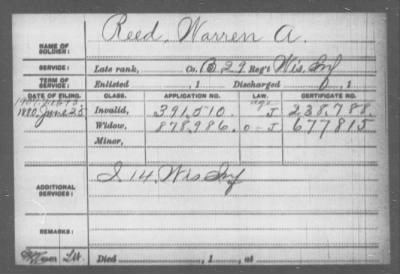 Reed, Warren A.
NAME OF SOLDIER:
SERVICE: Late rank, Co. B 29 Reg't Wis. Inf
TERM OF SERVICE: Enlisted , 1 Discharged , 1
DATE OF FILING. CLASS. APPLICATION NO. LAW. CERTIFICATE NO.
1880, June 25 Invalid, 391,510. age J 238,788.
Widow, 878,986. O-J 677815
Minor,
ADDITIONAL SERVICES: I 14. Wis Inf
REMARKS:
Died , 1 , at